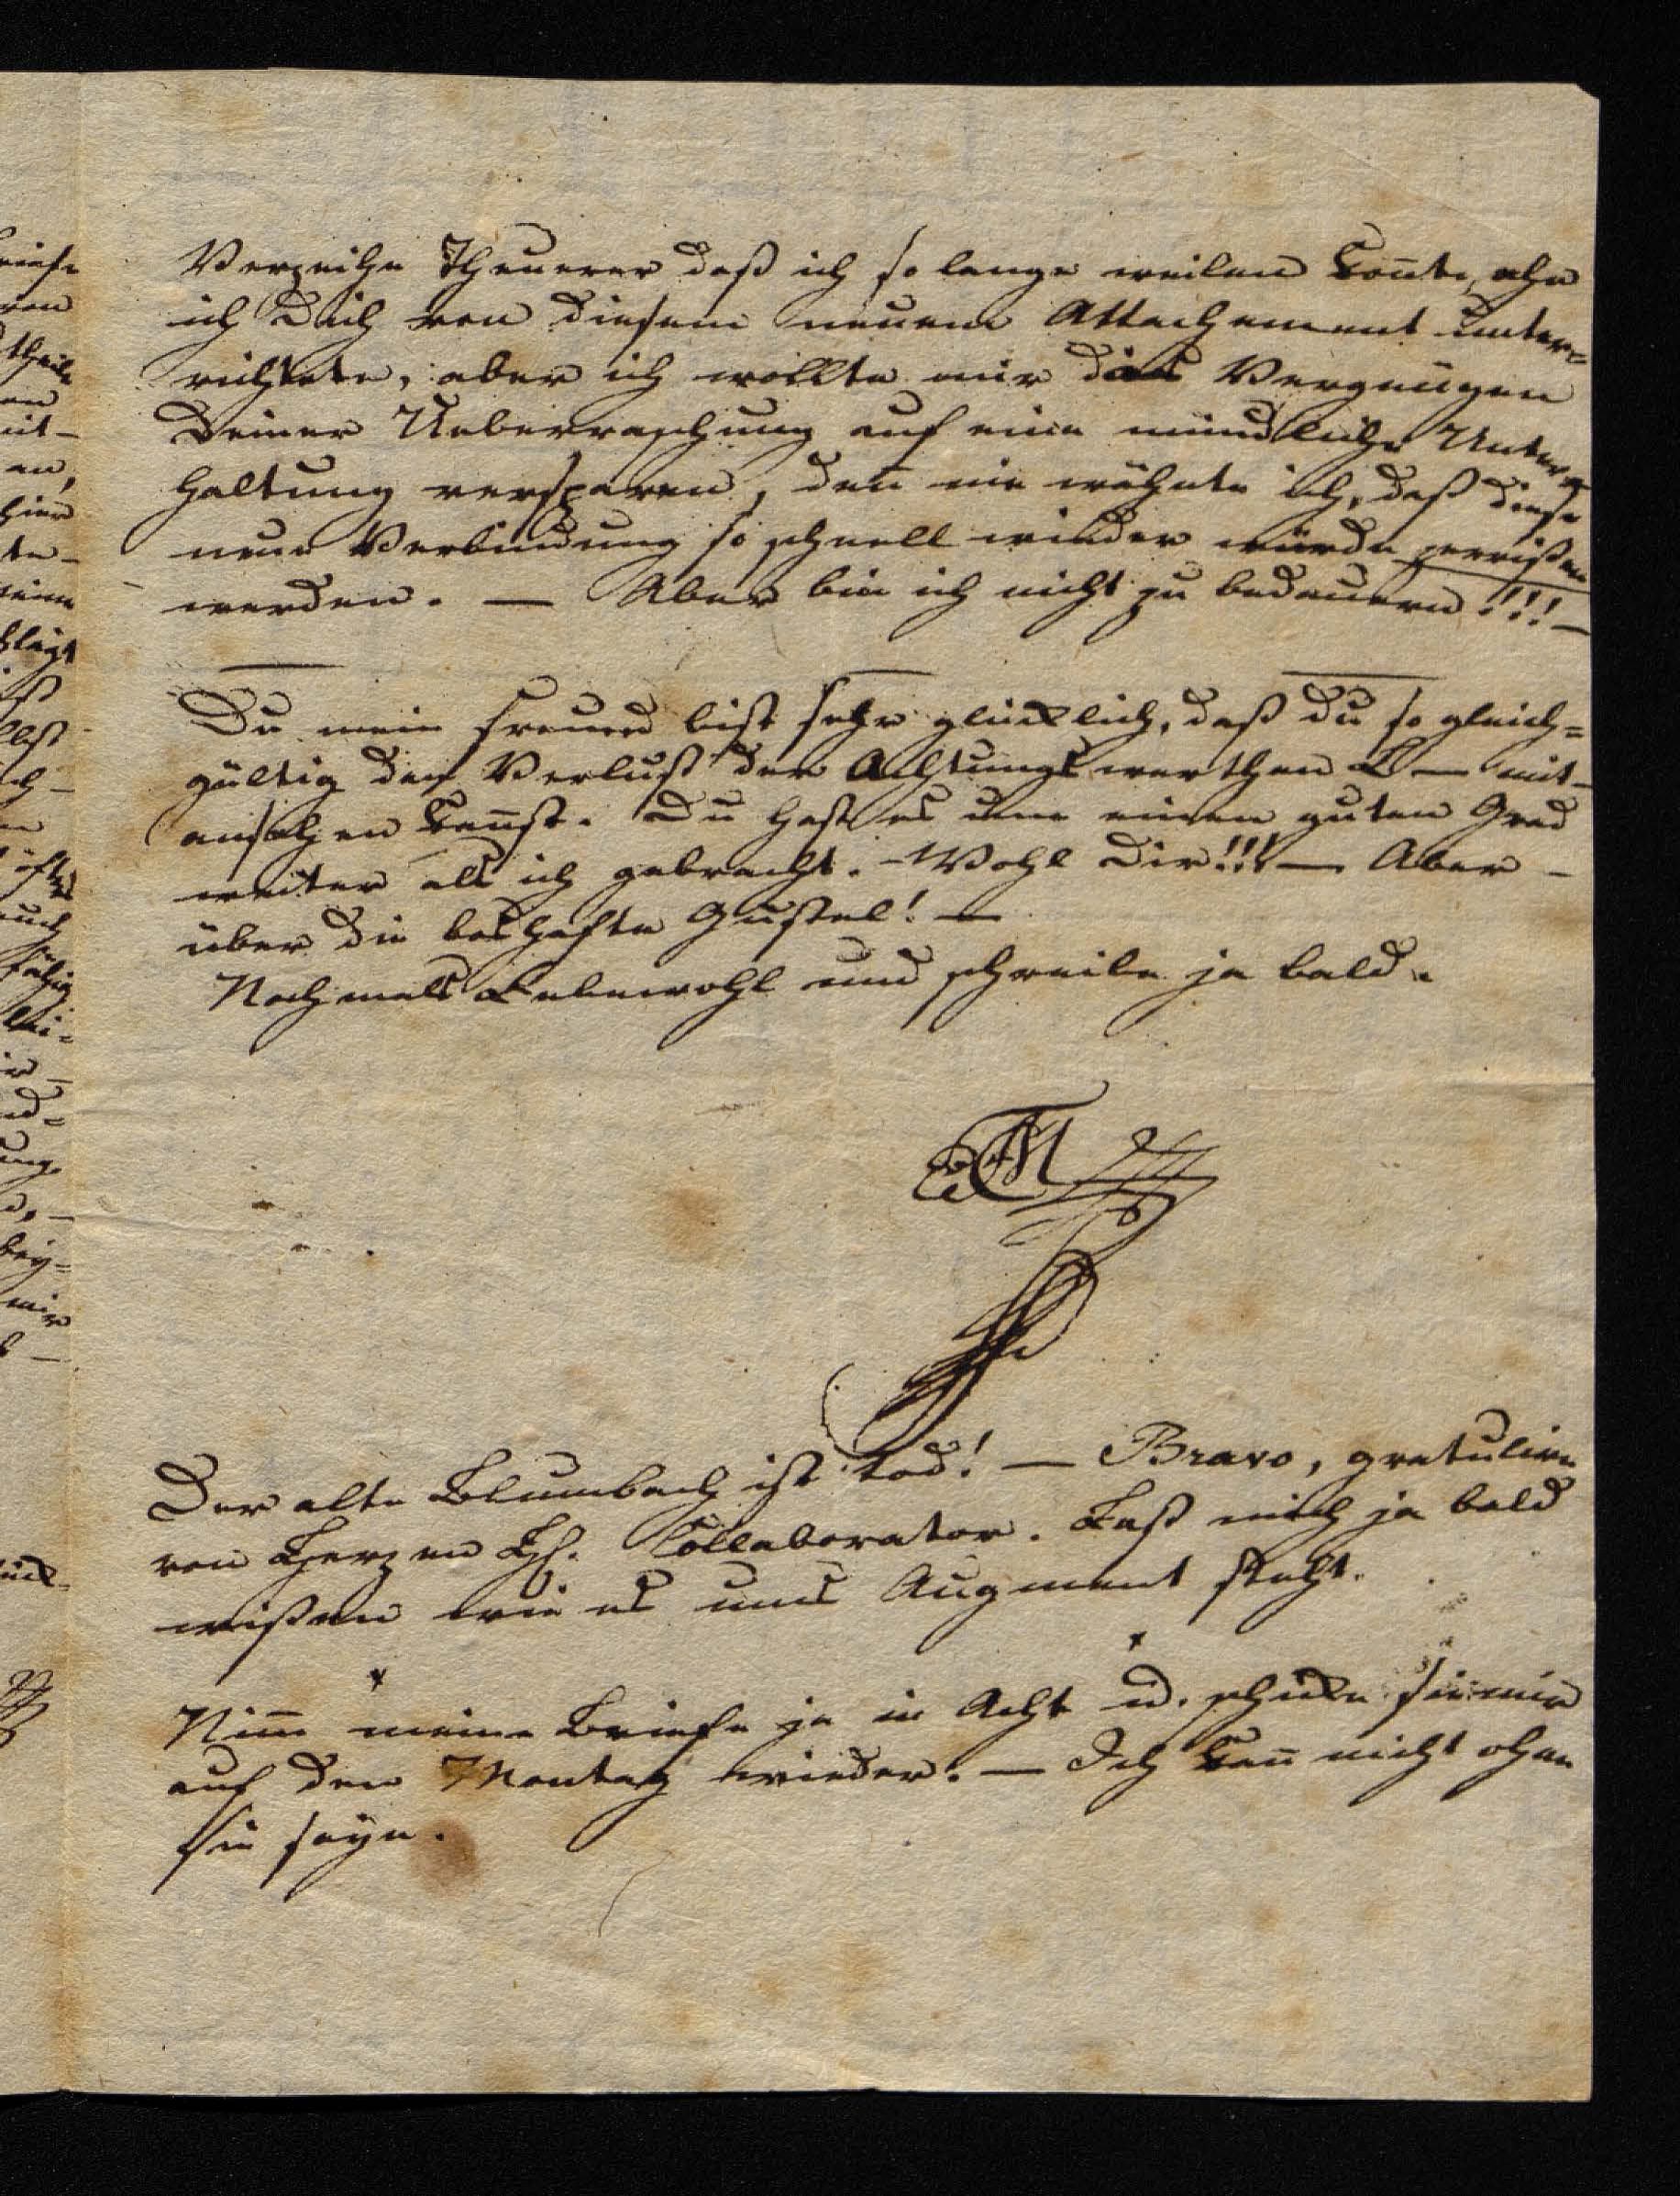 Verzeihe Theuerer daß ich so lange weilen konnte, ehe
ich Dich von diesem neuem Attachement unter=
richtete, aber ich wollte mir das Vergnügen
Deiner Ueberraschung auf eine mündliche Unter=
haltung versparen, den̄ nie wähnte ich, daß diese
neue Verbindung so schnell wieder würde zerrißen
werden. — Aber bin ich nicht zu bedauern!!! —
Du mein Freund bist sehr glücklich, daß du so gleich=
gültig den Verlust der Achtungswerthen L — mit-
ansehen kan̄st. Du hast es um einen guten Grad
weiter als ich gebracht. – Wohl Dir!!! — Aber –
über die boshafte Gustel! —
Nochmals Lebewohl und schreibe ja bald.
Der alte Blumbach ist tod! — Bravo, gratulire
von Herzen H. Collaborator. Laß mich ja bald
wißen wie es ums Augment steht.
Nim̄ meine Briefe ja in Acht u. schicke sie mir
auf den Montag wieder. — Ich kan̄ nicht ohne
sie seyn.